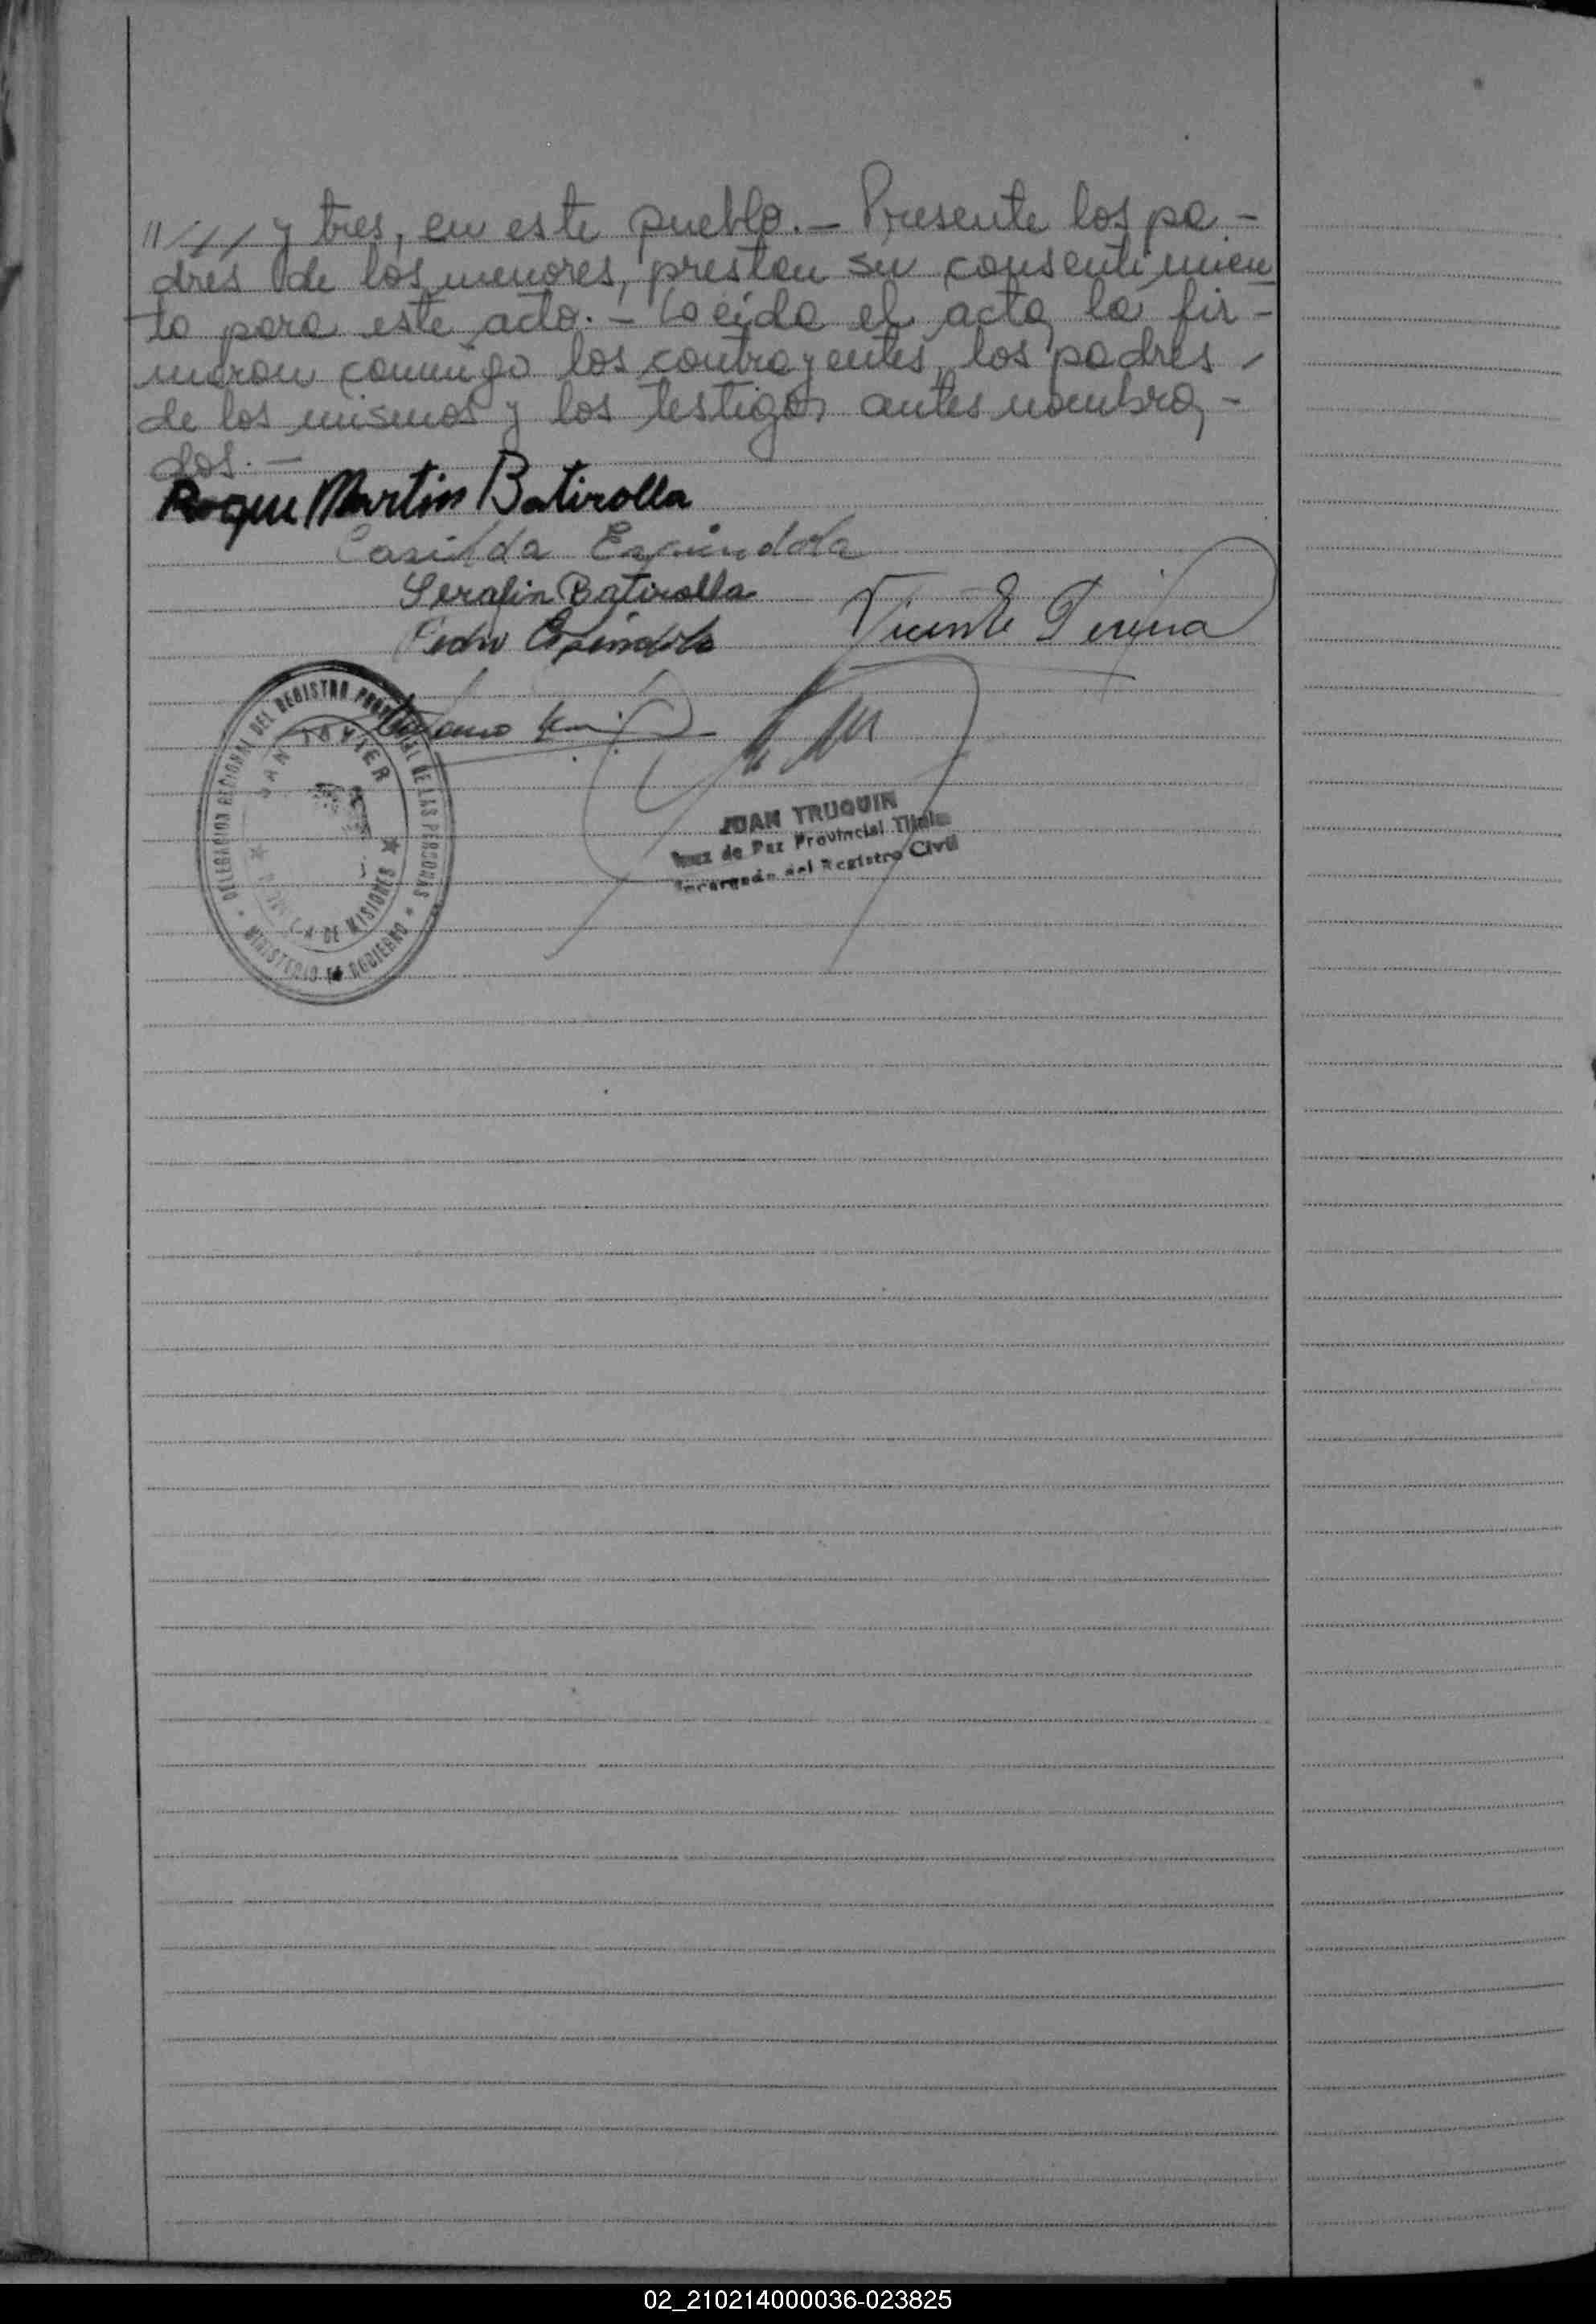 //-//-/ y tres, en este pueblo.- Presente los pa-
dres de los menores, prestan su consentimien
to para este acto.- Leída el acta, la fir-
maron conmigo los contrayentes, los padres -
de los mismos y los testigos antes nombra-
dos.-
Roque Martin Batirolla
Casilda Espindola
Serafin Batirolla
Pedro Espindola Vicente Pereyra
DELEGACION REGIONAL DEL REGISTRO PROVINCIAL DE LAS PERSONAS
SAN JAVIER
DE MISIONES
MINISTERIO DE GOBIERNO
JUAN TRUQUIN
Juez de Paz Provincial Titular
Encargado del Registro Civil
02_210214000036-023825